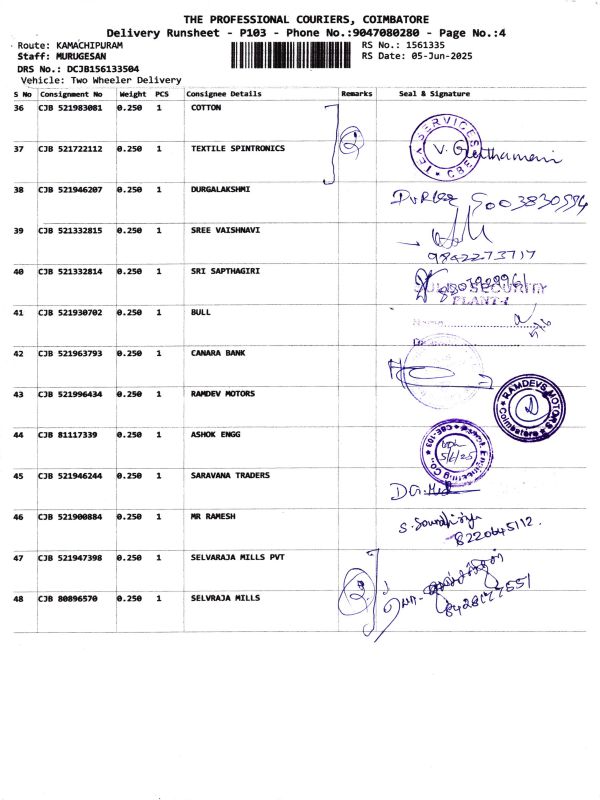 THE PROFESSIONAL COURIERS, COIMBATORE
Delivery Runsheet - P103 - Phone No.:9047080280 - Page No.:4
Route: KAMACHIPURAM RS No.: 1561335
Staff: MURUGESAN RS Date: 05-Jun-2025
DRS No.: DCJB156133504
Vehicle: Two Wheeler Delivery
S No Consignment No Weight PCS Consignee Details Remarks Seal & Signature
36 CJB 521983081 0.250 1 COTTON
37 CJB 521722112 0.250 1 TEXTILE SPINTRONICS 2 SERVICES CBE V.
38 CJB 521946207 0.250 1 DURGALAKSHMI 9003830594
39 CJB 521332815 0.250 1 SREE VAISHNAVI 9842273717
40 CJB 521332814 0.250 1 SRI SAPTHAGIRI
SECURITY
PLANT-I
41 CJB 521930702 0.250 1 BULL Name 5/6
42 CJB 521963793 0.250 1 CANARA BANK
43 CJB 521996434 0.250 1 RAMDEV MOTORS RAMDEVS MOTORS Coimbatore
44 CJB 81117339 0.250 1 ASHOK ENGG Ashok Engineering Co. CBE-103 5/6/25
45 CJB 521946244 0.250 1 SARAVANA TRADERS
46 CJB 521900884 0.250 1 MR RAMESH S. 8220645112.
47 CJB 521947398 0.250 1 SELVARAJA MILLS PVT
48 CJB 80896570 0.250 1 SELVRAJA MILLS 2